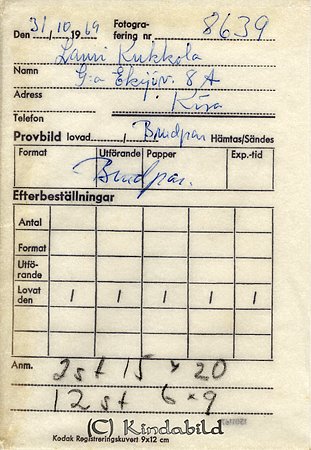 Den 31/10 1969 Fotogra-fering nr 8639
Lauri Kukkola
Namn G:a Eksjöv. 8 A
Adress Kisa
Telefon
Provbild lovad / Brudpar Hämtas/Sändes
Format Utförande Papper Exp.-tid
Brudpar.
Efterbeställningar
Antal
Format
Utfö-rande
Lovat den / / / / /
Anm. 2 st 15 x 20
12 st 6 x 9
(C) Kindabild
Kodak Registreringskuvert 9x12 cm